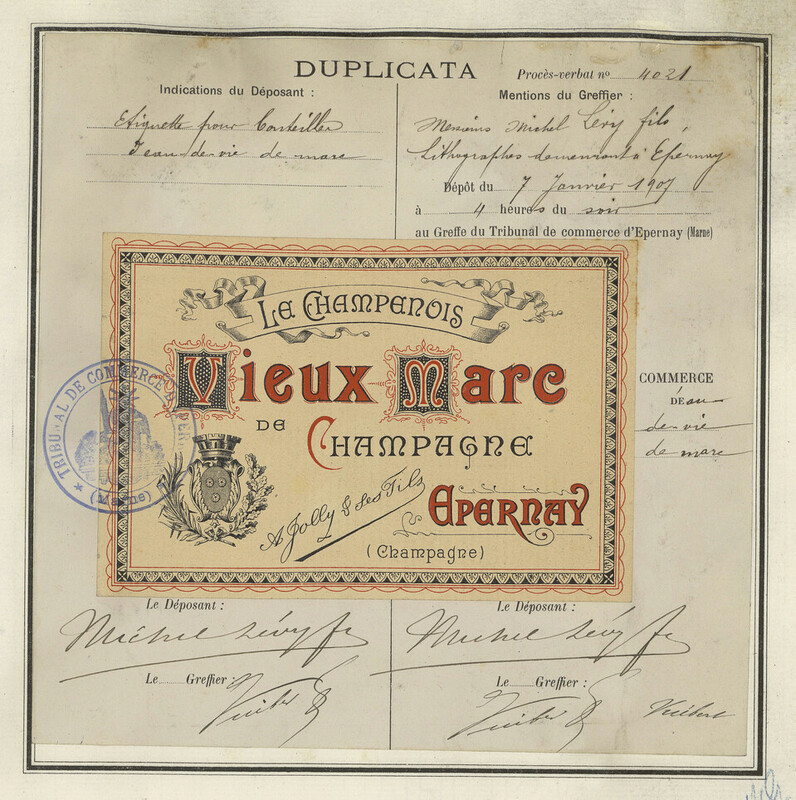 DUPLICATA
Procès-verbal nº 4021
Indications du Déposant :
Etiquette pour bouteilles
d'eau-de-vie de marc
Mentions du Greffier :
Messieurs Michel Lévy fils,
Lithographes demeurant à Epernay
Dépôt du 7 Janvier 1907
à 4 heures du soir
au Greffe du Tribunal de commerce d'Epernay (Marne)
LE CHAMPENOIS
Vieux Marc
DE
CHAMPAGNE
A Jolly & ses Fils
EPERNAY
(Champagne)
TRIBUNAL DE COMMERCE D'EPERNAY
(Marne)
COMMERCE
DÉau
de vie
de marc
Le Déposant :
Michel Lévy fs
Le Greffier :
Le Déposant :
Michel Lévy fs
Le Greffier :